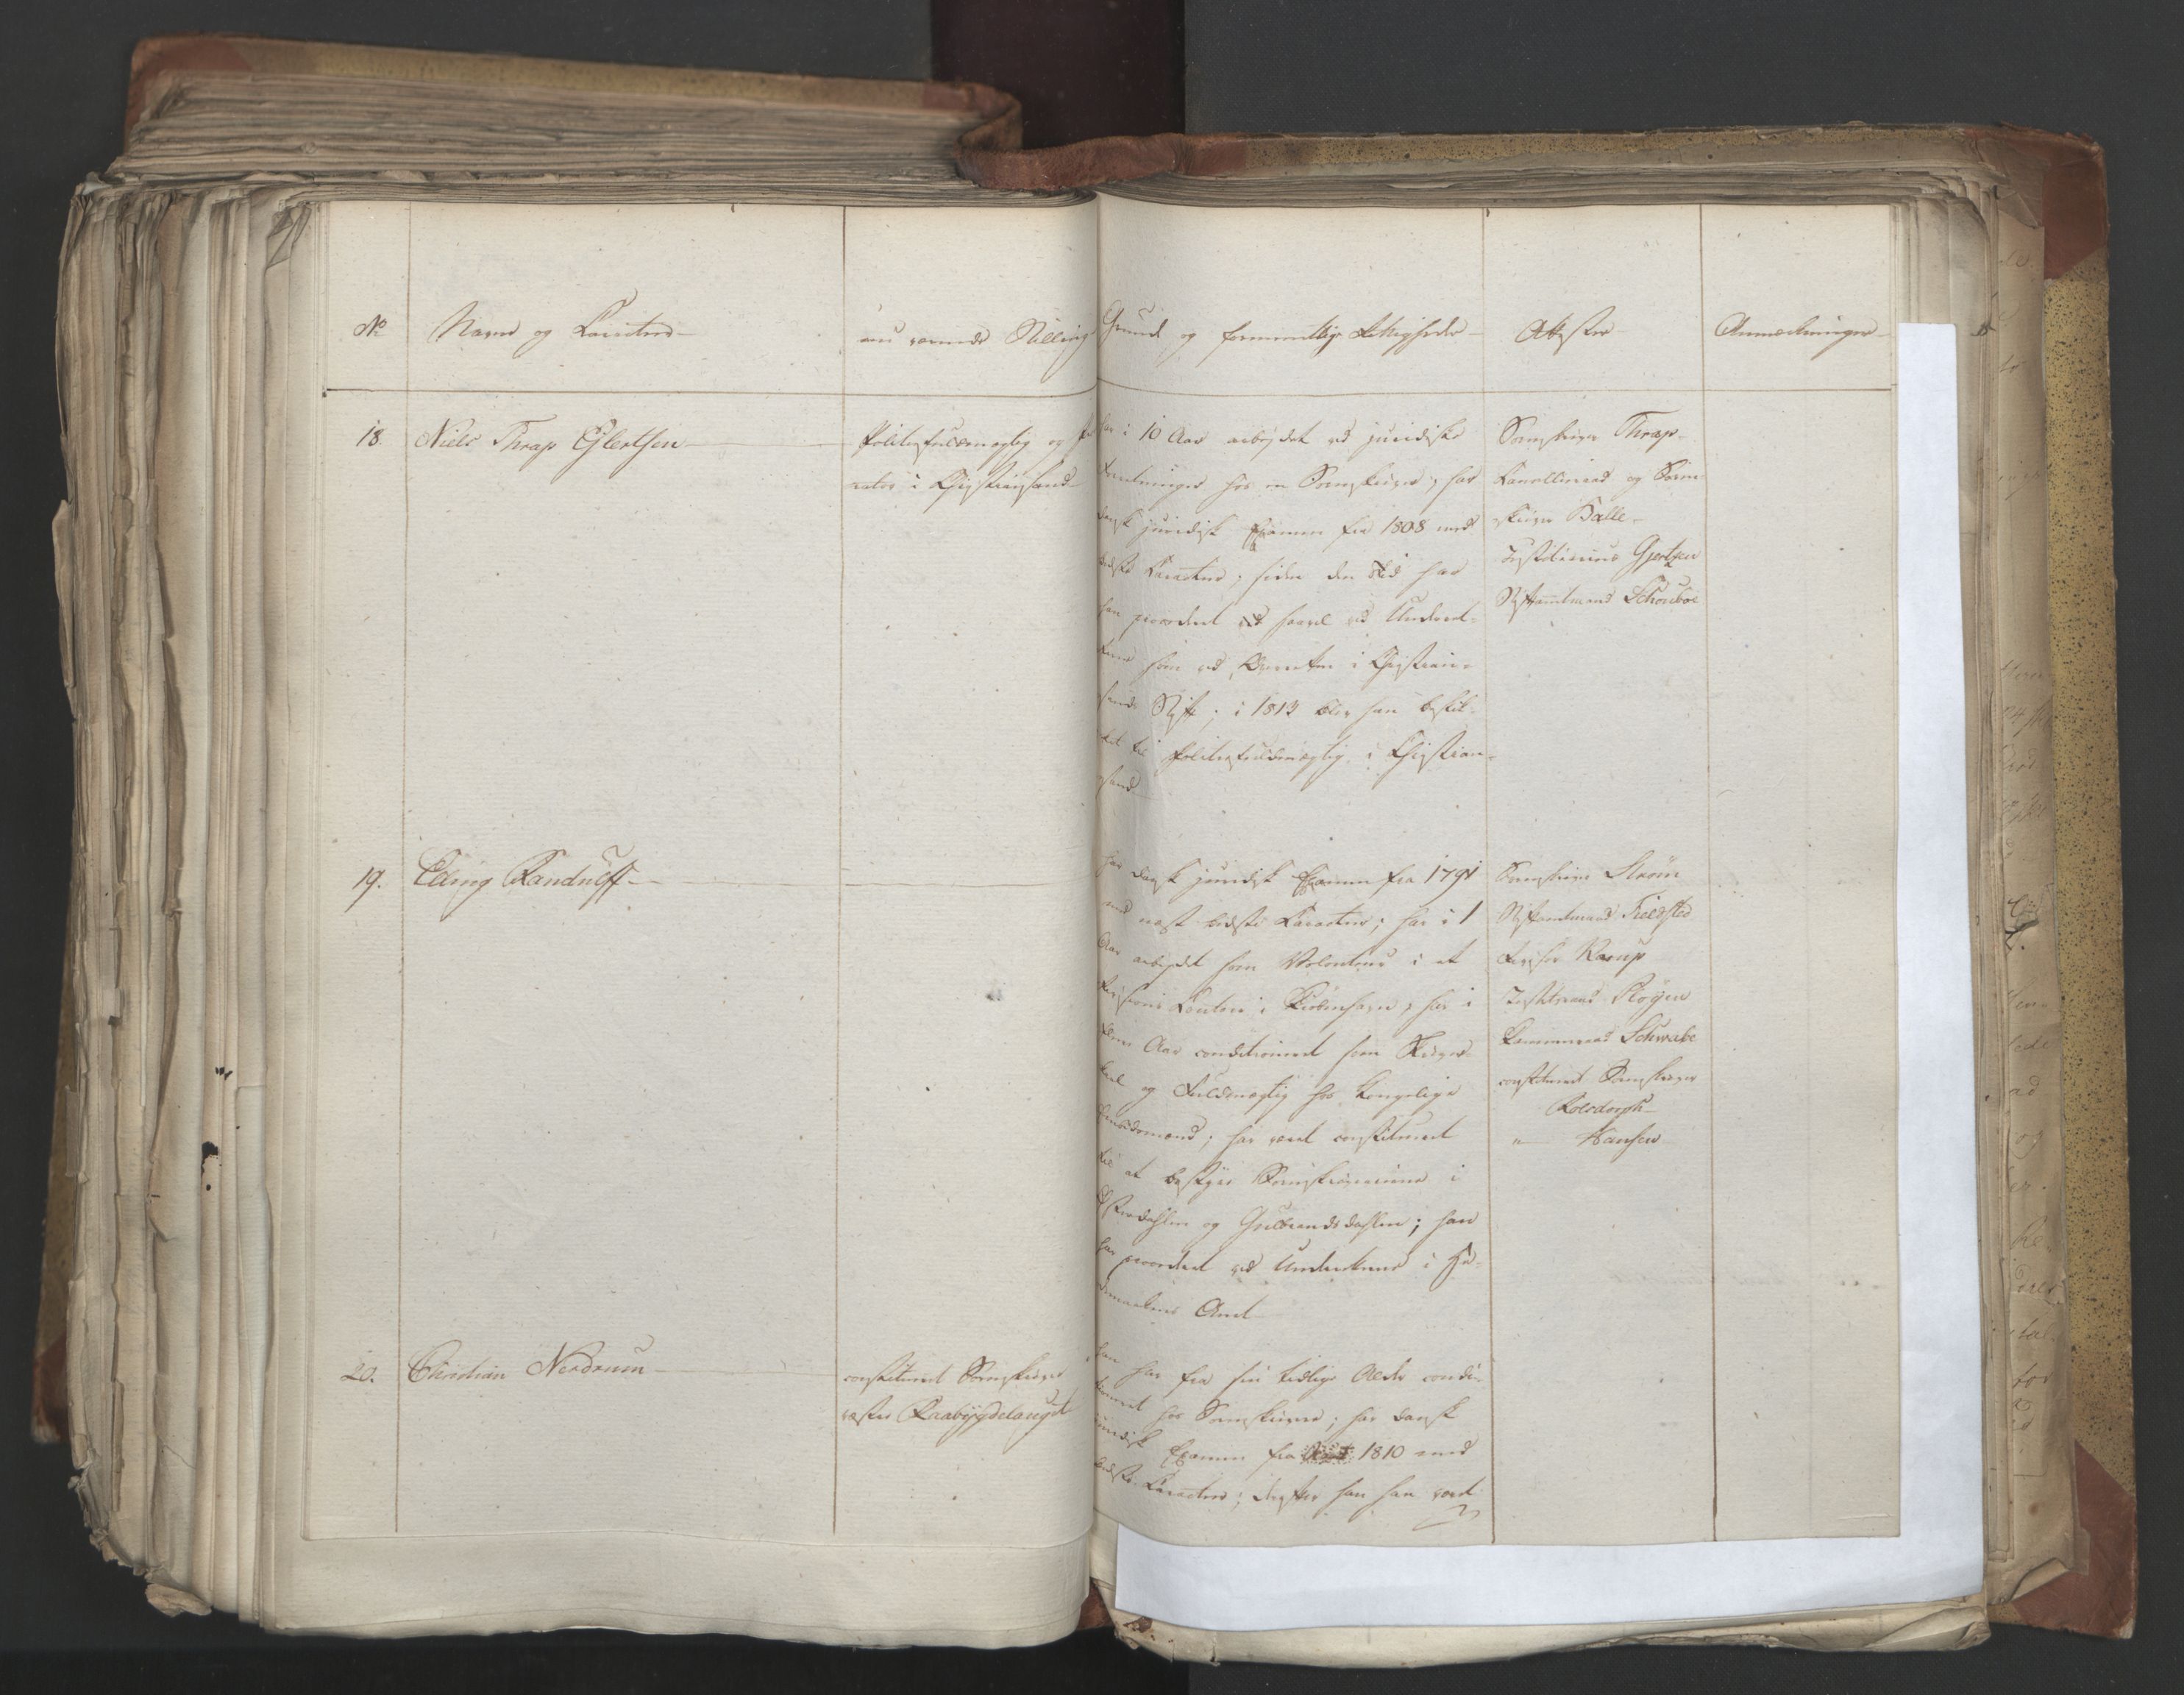 No
Navne og Caracteer
nu værende Stilling
Grund og formeentlige Rettigheder
Attester
Anmærkninger
18. Niels Thrap Eylertsen
Politiefuldmægtig og
rator i Christiansand
har i 10 Aar arbeydet ved juridiske
Forretninger hos en Sorenskriver; har
dansk juridisk Examen fra 1808 med
bedste Caracteer; siden den Tid har
han procederet saavel ved Underret-
terne som ved Overretten i Christian-
sands Stift; i 1813 blev han beskik-
ket til Politiefuldmægtig i Christian-
sand
Sorenskriver Thrap
Cancelliraad og Soren-
skriver Balle
Justitiarius Gjertsen
Stiftamtmand Schouboe
19. Elling Randulff
har dansk juridisk Examen fra 1791
med næst bedste Caracteer; har i 1
Aar arbeydet som Volonteur i et
Revisions Contoir i Kiøbenhavn, har i
flere Aar conditioneret som Skriver-
karl og Fuldmægtig hos Kongelige
Embedsmænd; har været constitueret
til at bestyre Sorenskriverierne i
Østerdahlen og Gulbrandsdahlen; han
har procederet ved Underretterne i He-
demarkens Amt
Sorenskriver Strøm
Stiftamtmand Fieldsted
Revisor Kaarup
Justitsraad Pløyen
Kammerraad Schwabe
constitueret Sorenskriver
Rolsdorph
" Hansen
20. Christian Nerdrum
constitueret Sorenskriver
vestre Raabygdelauget
han har fra sin tidlige Alder condi-
tioneret hos Sorenskrivere; har dansk
juridisk Examen fra 1810 med
bedste Caracteer; derefter har han været